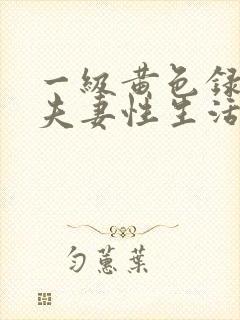 一级黄色录
夫妻性生活
匀蕙葉